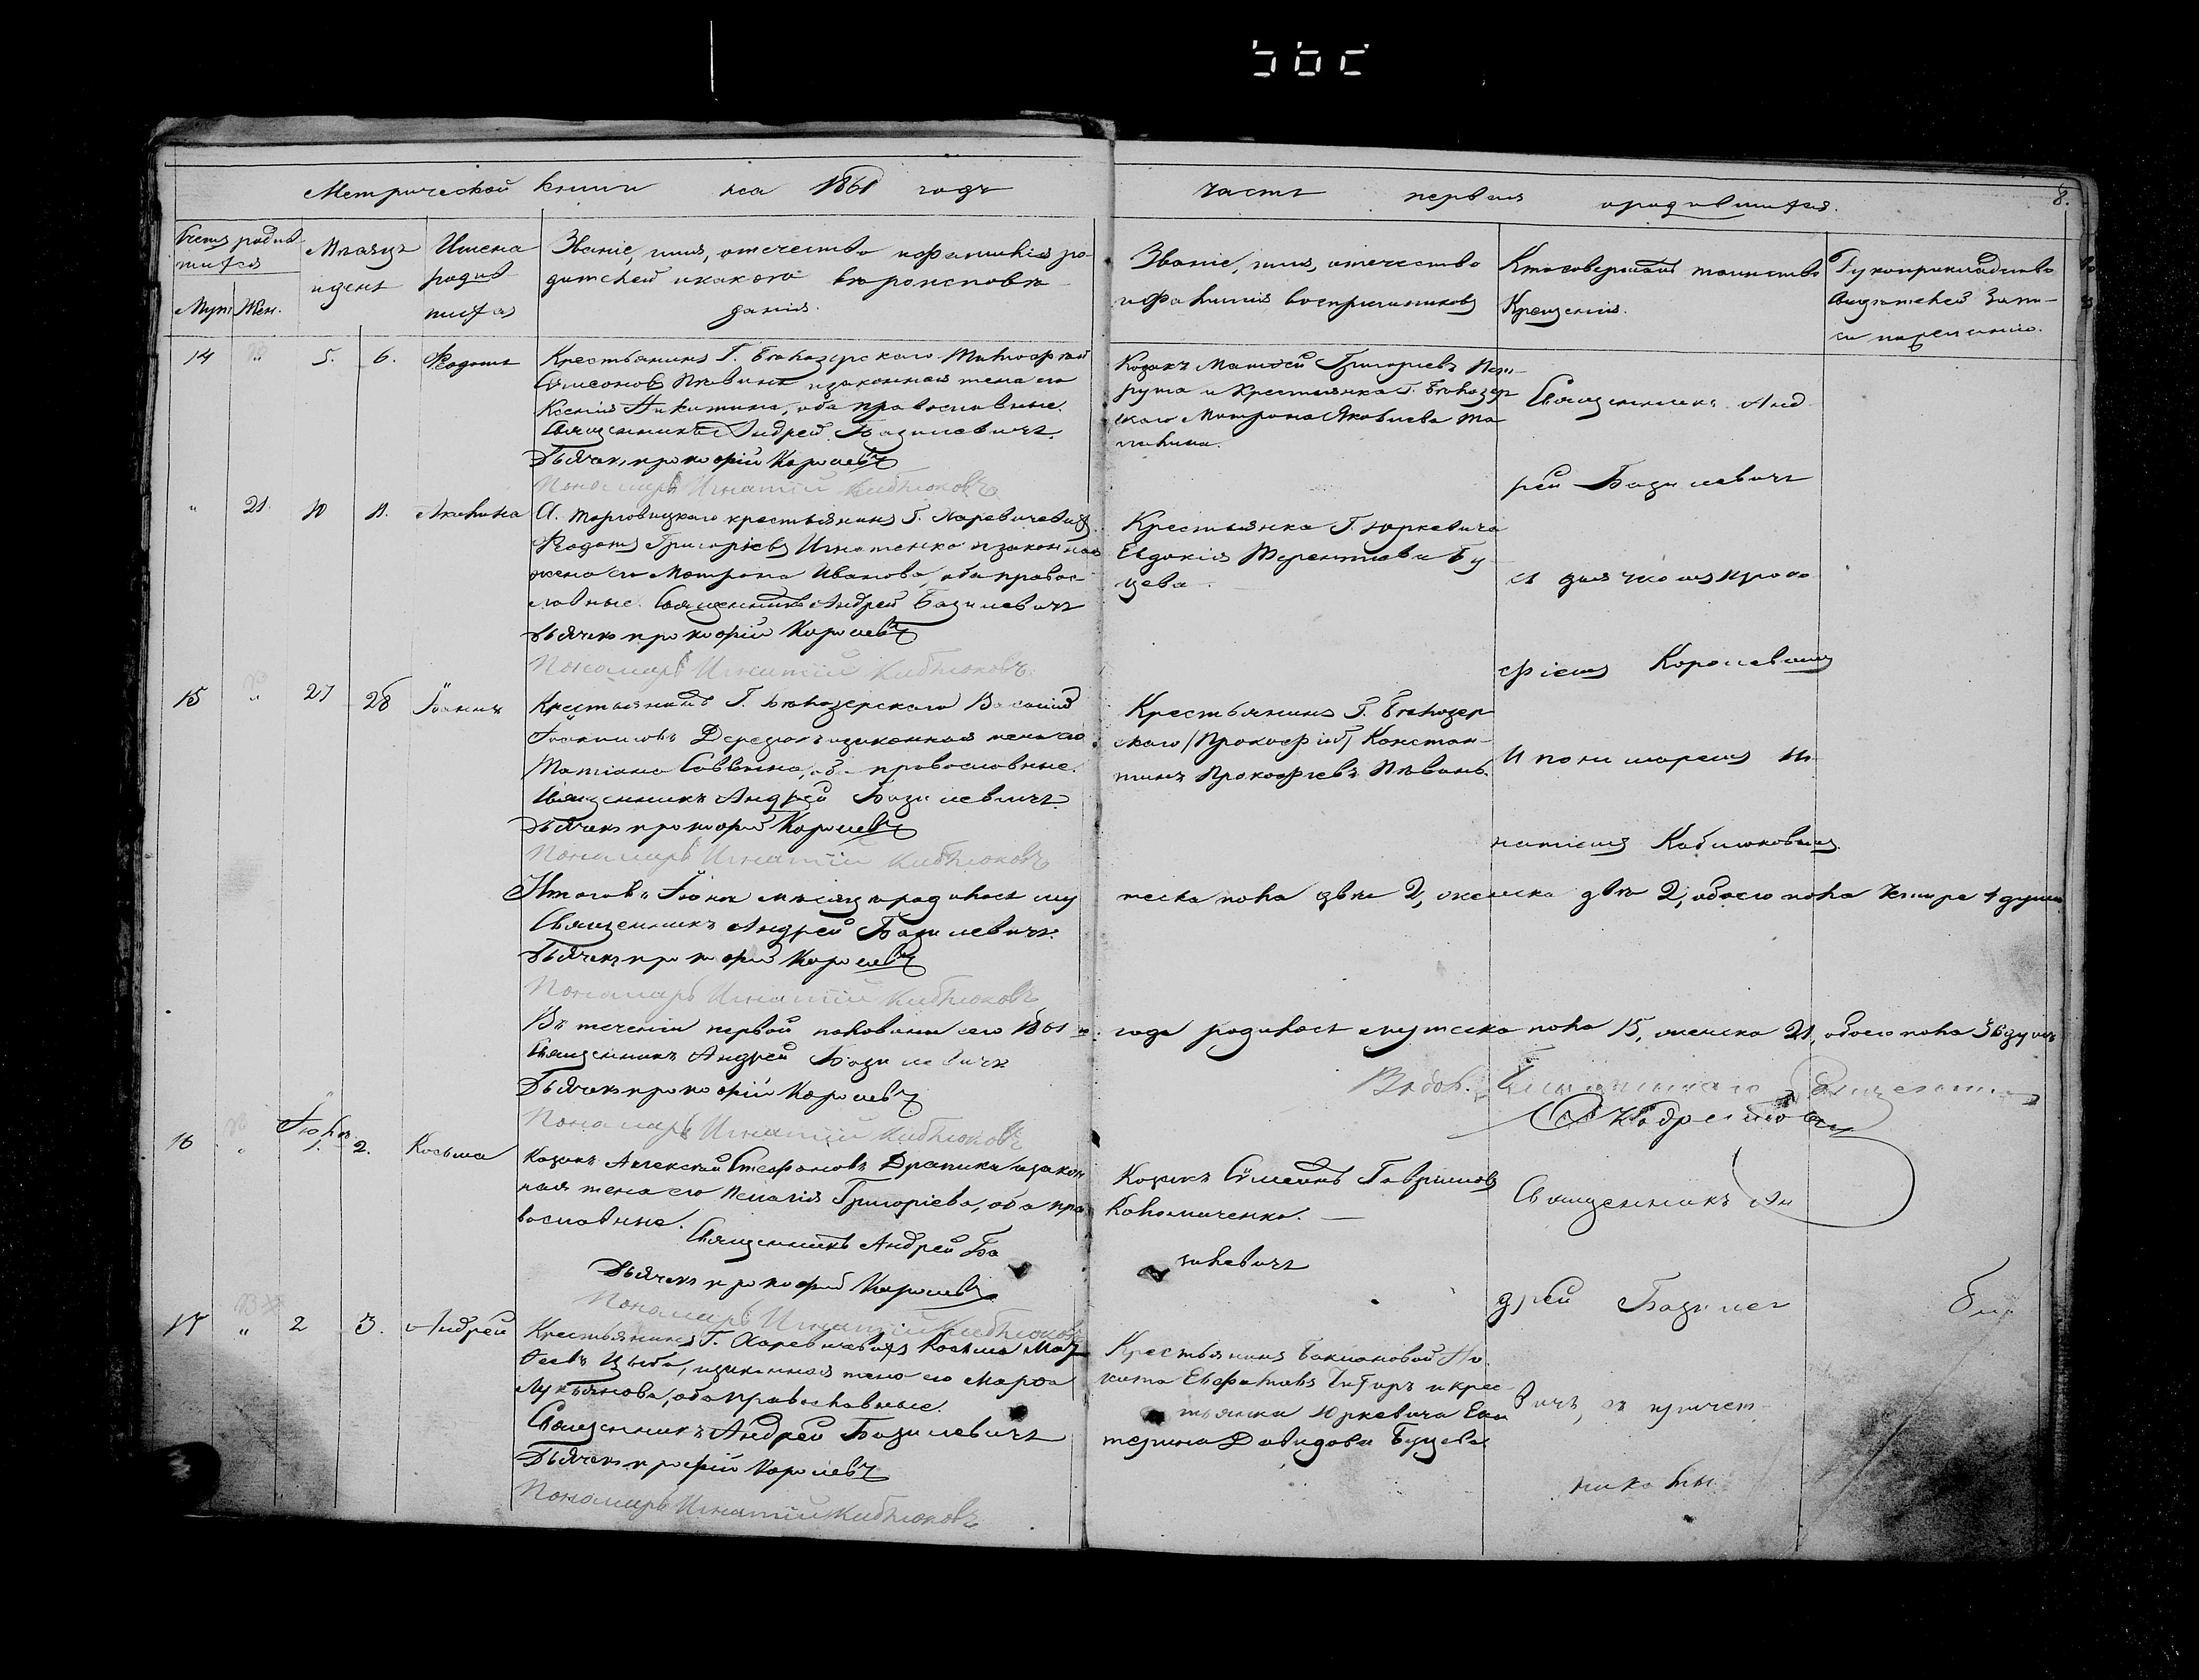 Метрической книги на 1861 годъ
часть первая о родившихся.
8.
Счетъ родив-
шихся
Муж. Жен.
Мѣсяцъ
и день
Имена
родив
шихся
Званіе, имя, отечество и фамилія ро-
дителей и какого вѣроисповѣ-
данія.
Званіе, имя, отечество
и фамилія воспріемниковъ
Кто совершалъ таинство
Крещенія.
Рукоприкладство
свидѣтелей записи
по желанію.
14 " 5. 6. Ѳедотъ
Крестьянинъ Г. Бѣлозерскаго Тимоѳей
Сѵмеоновъ Пѣвень и законная жена его
Ксенія Никитина, оба православные.
Священникъ Андрей Базилевичъ
Дьячекъ Прокофій Королевъ
Пономарь Игнатій Кибѣлюковъ
Козакъ Матѳей Григорьевъ
и Крестьянка Г. Бѣлозер
скаго Матрона Яковлева
Священникъ Анд
рей Базилевичъ
" 21. 10 11. Акилина
Крестьянинъ Г. Харевичевыхъ
Ѳедотъ Григорьевъ Игнатенко и законная
жена его Матрона Иванова, оба правос-
лавные. Священникъ Андрей Базилевичъ
Дьячекъ Прокофій Королевъ
Пономарь Игнатій Кибѣлюковъ
Крестьянка Г. Юркевича
Евдокія Терентіева Бу
цева
съ дьячкомъ Проко
фіемъ Королевымъ
15 " 27 28 Іоаннъ
Крестьянинъ Г. Бѣлозерскаго Василій
и законная жена его
Татіана Саввина, оба православные.
Священникъ Андрей Базилевичъ
Дьячекъ Прокофій Королевъ
Пономарь Игнатій Кибѣлюковъ
Крестьянинъ Г. Бѣлозер
скаго /Прокофій/ Констан-
тинъ Прокофіевъ Пѣвень.
и пономаремъ Иг
натіемъ Кибилюковымъ
Итого въ Іюнѣ мѣсяцѣ родилось му
жеска пола двѣ 2, женска двѣ 2, обоего пола четыре 4 души
Священникъ Андрей Базилевичъ
Дьячекъ Прокофій Королевъ
Пономарь Игнатій Кибѣлюковъ
Въ теченіи первой половины сего 1861-го
года родилось мужеска пола 15, женска 21, обоего пола 36 душъ
Священникъ Андрей Базилевичъ
Дьячекъ Прокофій Королевъ
Пономарь Игнатій Кибѣлюковъ
Іюль
16 " 1. 2. Косьма
Козакъ Алексѣй Стефановъ и закон
ная жена его Пелагія Григоріева, оба пра
вославные.
Священникъ Андрей Ба
зилевичъ
Дьячекъ Прокофій Королевъ
Пономарь Игнатій Кибѣлюковъ
Козакъ Сѵмеонъ Гавриловъ
Коломиченко.
Священникъ Ан
дрей Базилев
17 " 2 3. Андрей
Крестьянинъ Г. Харевичевыхъ Косьма Мат
ѳеевъ Цыба, и законная жена его Марѳа
Лукьянова, оба православные.
Священникъ Андрей Базилевичъ
Дьячекъ Прокофій Королевъ
Пономарь Игнатій Кибѣлюковъ
Крестьянинъ Ни
кита и крес
тьянка Юркевича Ека
терина Давидова Буцева
вичъ, съ причет
никами